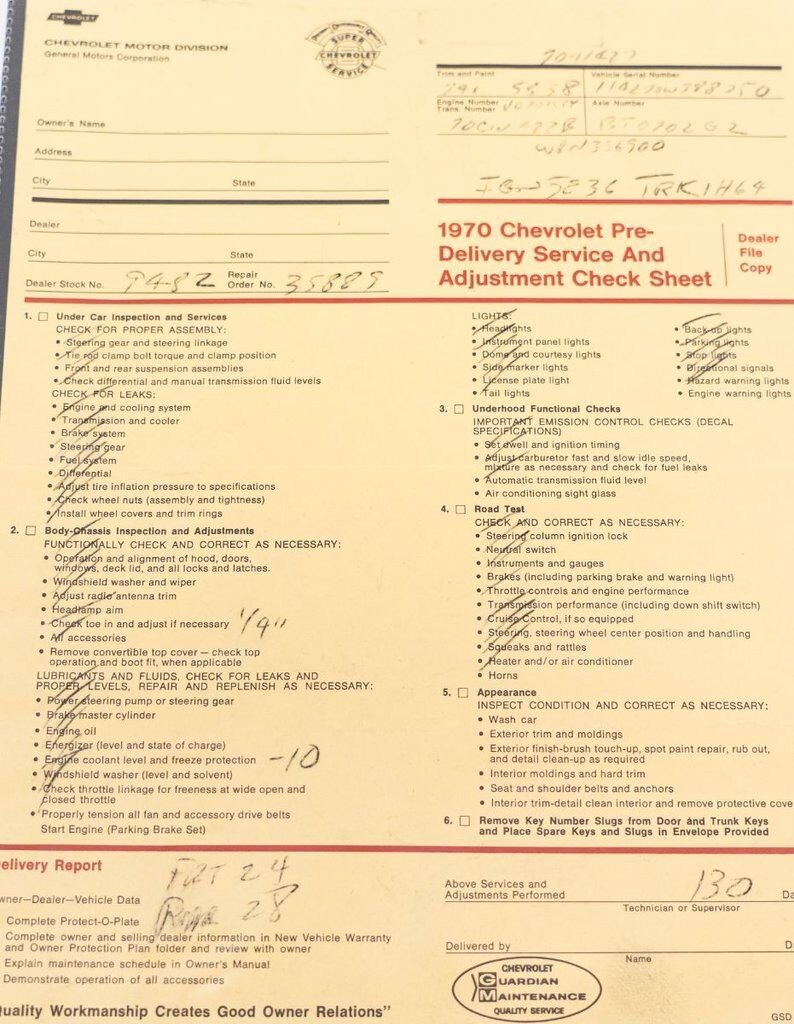 CHEVROLET
CHEVROLET MOTOR DIVISION
General Motors Corporation
SUPER
CHEVROLET
SERVICE
Owner's Name
Address
City State
Dealer
City State
Dealer Stock No. 9482 Repair Order No. 35889
Trim and Paint Vehicle Serial Number
Engine Number
Trans. Number
Axle Number
IGN 5236 TRK 1H64
1970 Chevrolet Pre-
Delivery Service And
Adjustment Check Sheet
Dealer
File
Copy
1. □ Under Car Inspection and Services
CHECK FOR PROPER ASSEMBLY:
• Steering gear and steering linkage
• Tie rod clamp bolt torque and clamp position
• Front and rear suspension assemblies
• Check differential and manual transmission fluid levels
CHECK FOR LEAKS:
• Engine and cooling system
• Transmission and cooler
• Brake system
• Steering gear
• Fuel system
• Differential
• Adjust tire inflation pressure to specifications
• Check wheel nuts (assembly and tightness)
• Install wheel covers and trim rings
2. □ Body-Chassis Inspection and Adjustments
FUNCTIONALLY CHECK AND CORRECT AS NECESSARY:
• Operation and alignment of hood, doors,
windows, deck lid, and all locks and latches.
• Windshield washer and wiper
• Adjust radio antenna trim
• Headlamp aim
• Check toe in and adjust if necessary 1/4"
• All accessories
• Remove convertible top cover — check top
operation and boot fit, when applicable
LUBRICANTS AND FLUIDS, CHECK FOR LEAKS AND
PROPER LEVELS, REPAIR AND REPLENISH AS NECESSARY:
• Power steering pump or steering gear
• Brake master cylinder
• Engine oil
• Energizer (level and state of charge)
• Engine coolant level and freeze protection -10
• Windshield washer (level and solvent)
• Check throttle linkage for freeness at wide open and
closed throttle
• Properly tension all fan and accessory drive belts
Start Engine (Parking Brake Set)
LIGHTS:
• Headlights
• Instrument panel lights
• Dome and courtesy lights
• Side marker lights
• License plate light
• Tail lights
• Back-up lights
• Parking lights
• Stop lights
• Directional signals
• Hazard warning lights
• Engine warning lights
3. □ Underhood Functional Checks
IMPORTANT EMISSION CONTROL CHECKS (DECAL
SPECIFICATIONS)
• Set dwell and ignition timing
• Adjust carburetor fast and slow idle speed,
mixture as necessary and check for fuel leaks
• Automatic transmission fluid level
• Air conditioning sight glass
4. □ Road Test
CHECK AND CORRECT AS NECESSARY:
• Steering column ignition lock
• Neutral switch
• Instruments and gauges
• Brakes (including parking brake and warning light)
• Throttle controls and engine performance
• Transmission performance (including down shift switch)
• Cruise Control, if so equipped
• Steering, steering wheel center position and handling
• Squeaks and rattles
• Heater and/or air conditioner
• Horns
5. □ Appearance
INSPECT CONDITION AND CORRECT AS NECESSARY:
• Wash car
• Exterior trim and moldings
• Exterior finish-brush touch-up, spot paint repair, rub out,
and detail clean-up as required
• Interior moldings and hard trim
• Seat and shoulder belts and anchors
• Interior trim-detail clean interior and remove protective cove
6. □ Remove Key Number Slugs from Door and Trunk Keys
and Place Spare Keys and Slugs in Envelope Provided
elivery Report
24
wner—Dealer—Vehicle Data
28
Complete Protect-O-Plate
Complete owner and selling dealer information in New Vehicle Warranty
and Owner Protection Plan folder and review with owner
Explain maintenance schedule in Owner's Manual
Demonstrate operation of all accessories
uality Workmanship Creates Good Owner Relations"
Above Services and
Adjustments Performed 130 Da
Technician or Supervisor
Delivered by D
Name
CHEVROLET
GUARDIAN
MAINTENANCE
QUALITY SERVICE
GSD